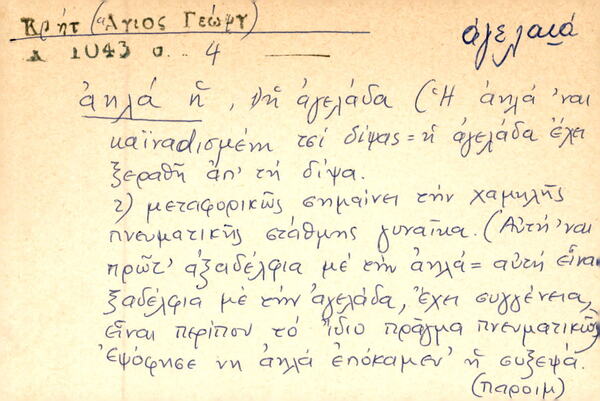 Κρήτ (Ἅγιος Γεώργ
λ 1043 σ. 4
ἀγελαιά
ἀηλά ἡ, νἡ ἀγελάδα (Ἡ ἀηλά 'ναι
καϊναdισμένη τσί δίψας = ἡ ἀγελάδα ἔχει
ξεραθῆ ἀπ' τή δίψα.
2) μεταφορικῶς σημαίνει τήν χαμηλῆς
πνευματικῆς στάθμης γυναῖκα. (Αὐτή 'ναι
πρῶτ' ἀξαδέλφια μέ τήν ἀηλά = αὐτή εἶναι
ξαδέλφια μέ τήν ἀγελάδα, ἔχει συγγένεια,
εἶναι περίπου τό ἴδιο πρᾶγμα πνευματικῶς
Ἐψόφησε νη ἀηλά ἐπόκαμεν' ἡ συξεψά.
(παροιμ)